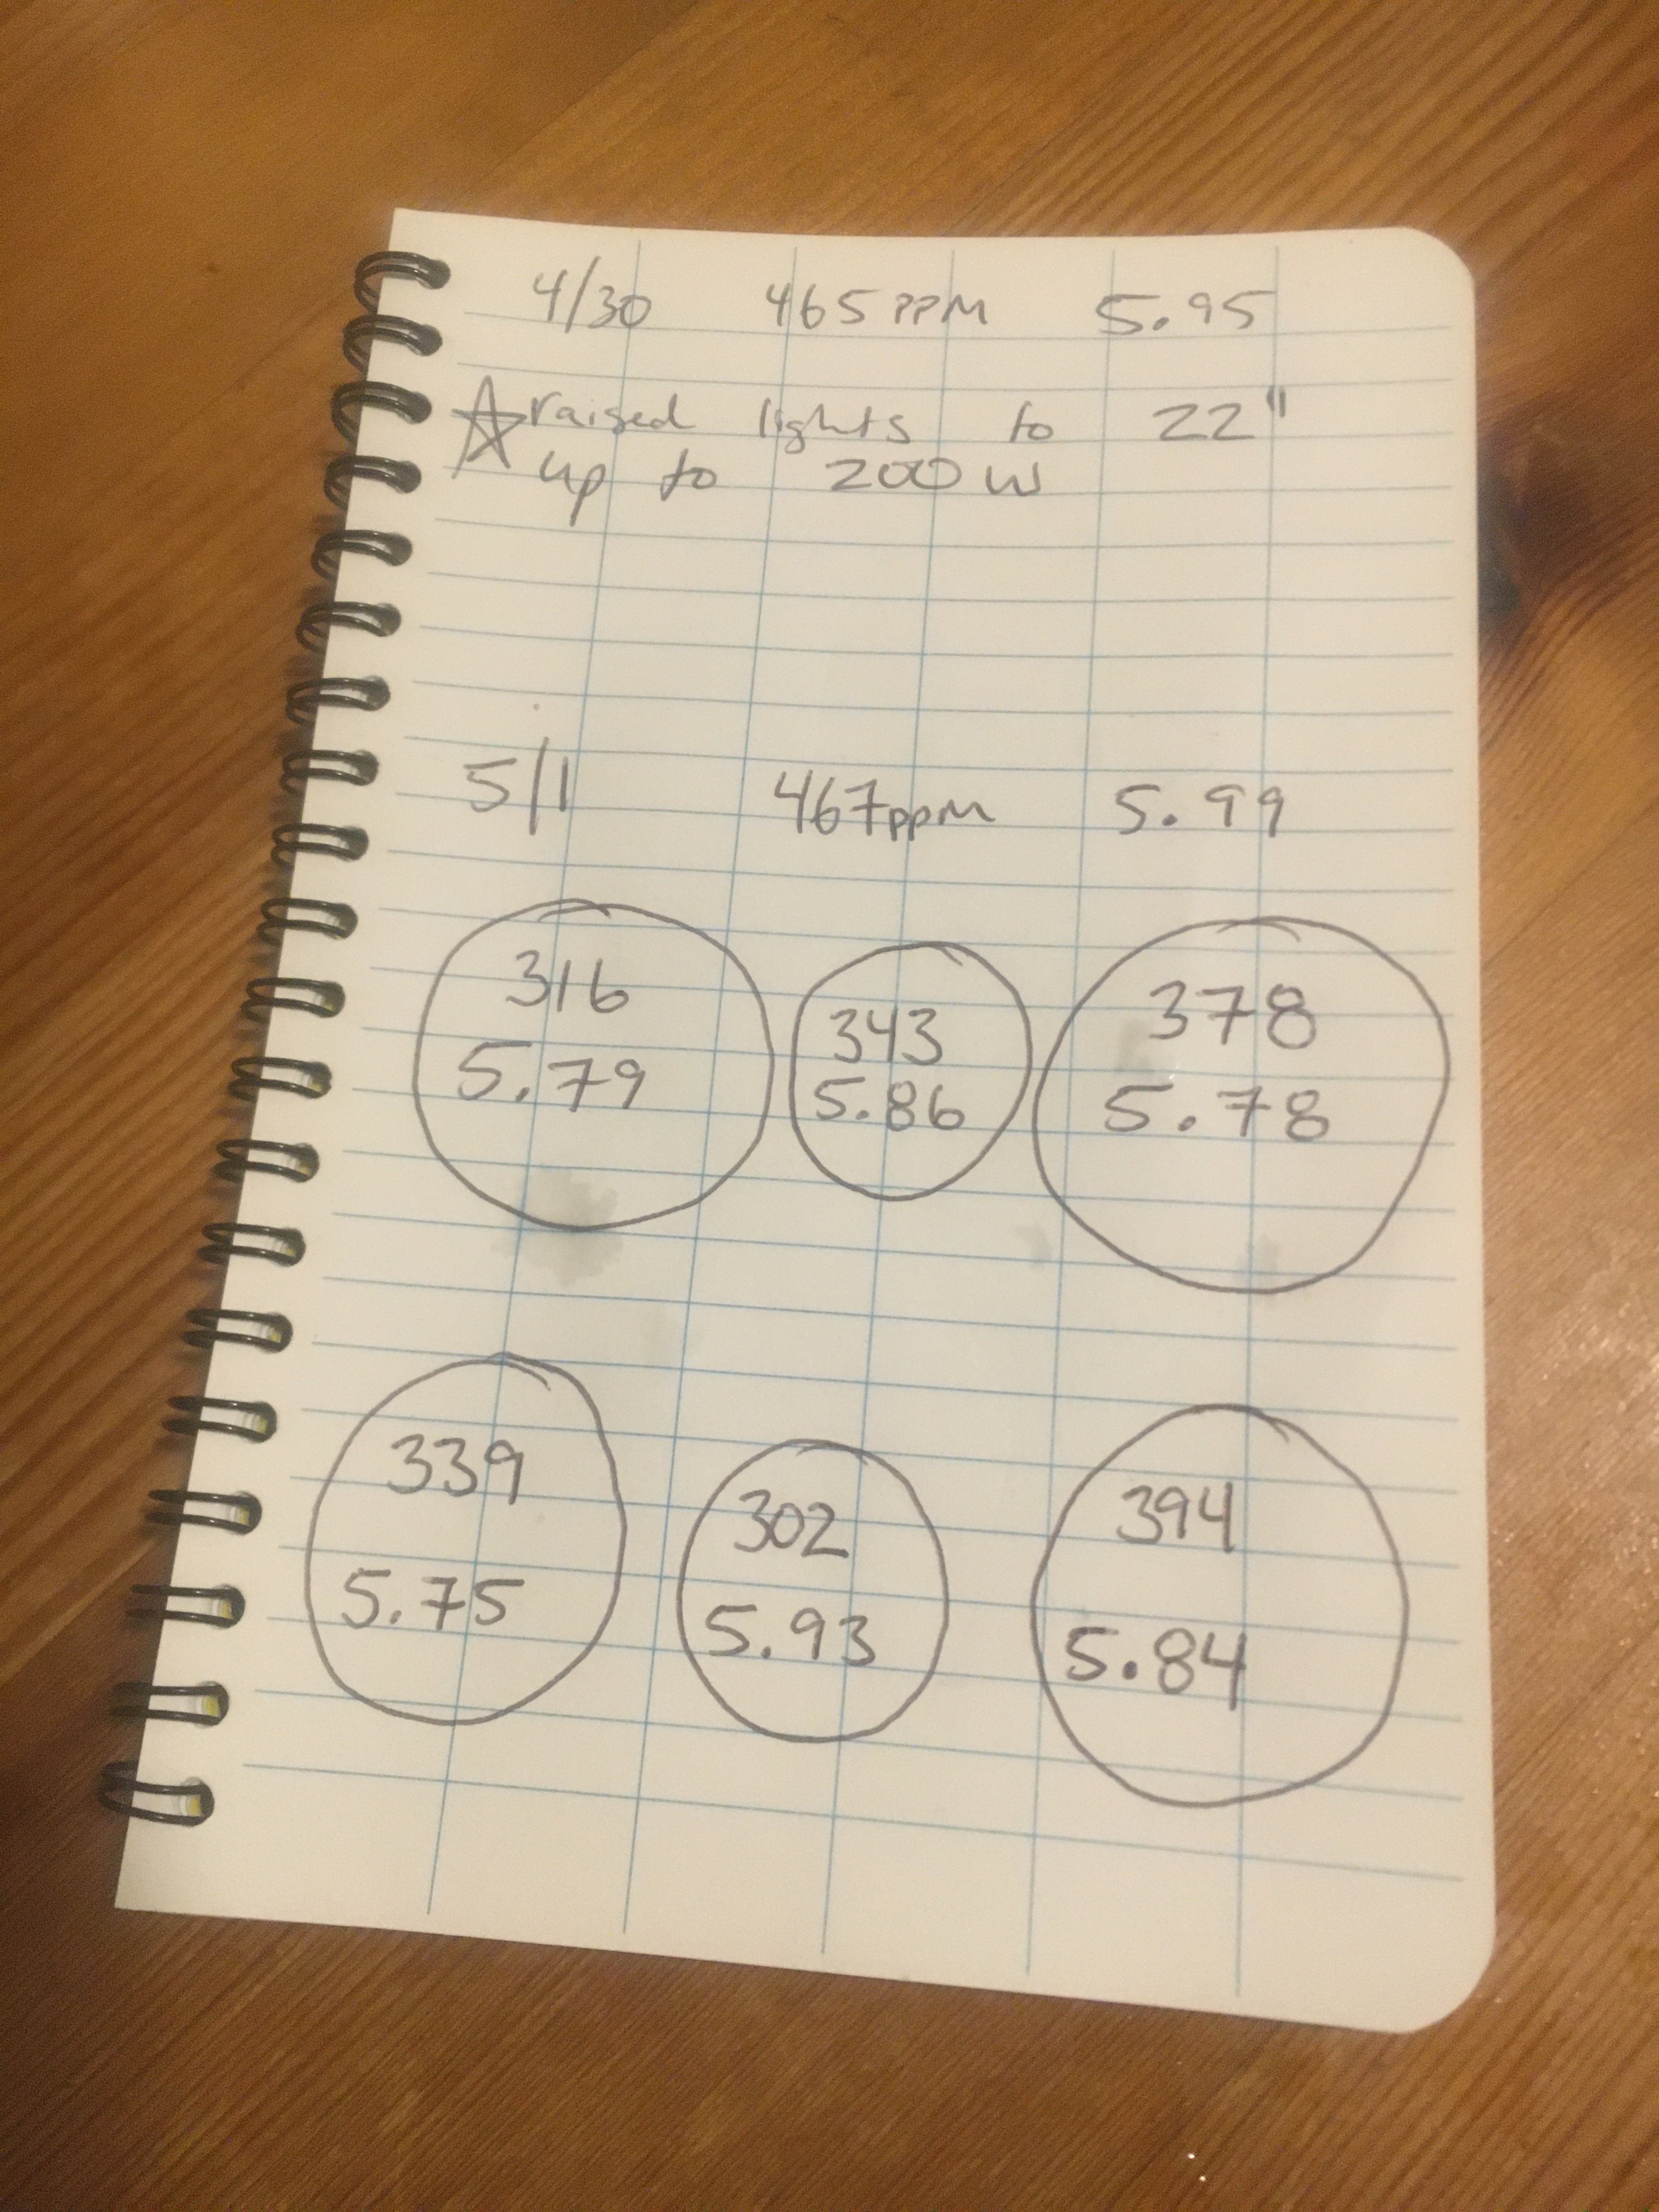 4/30 465 PPM 5.95
raised lights to 22"
up to 200 W
5/1 467ppm 5.99
316
5.79
343
5.86
378
5.78
339
5.75
302
5.93
394
5.84